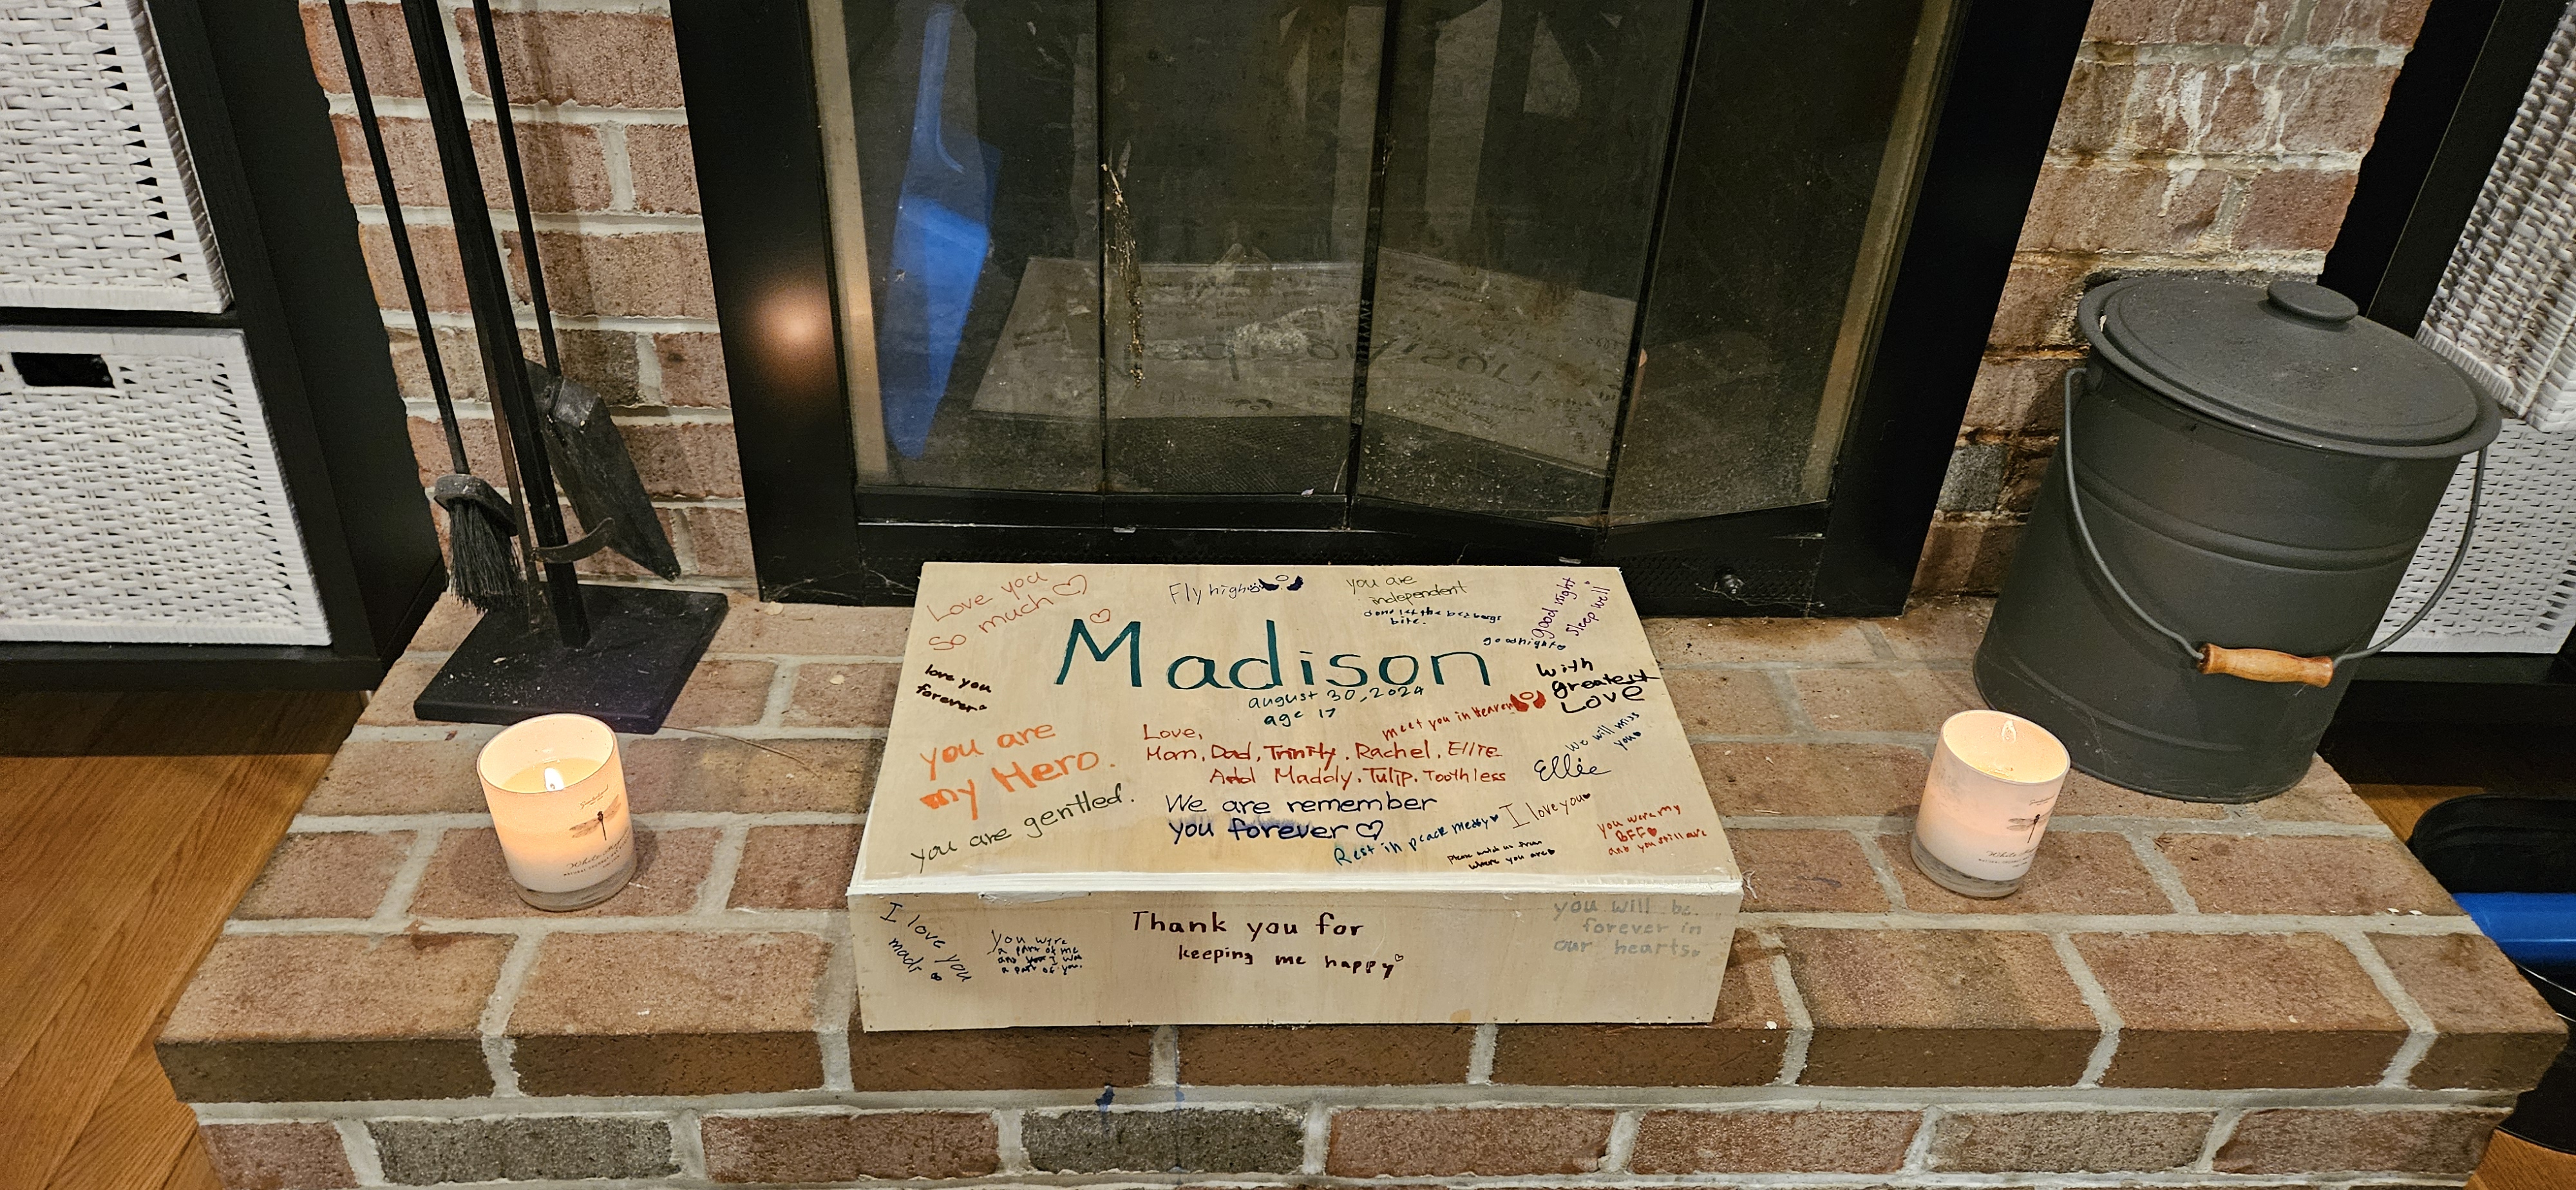 Love you
so much
Fly high
you are
independent
don't let the bedbugs
bite.
goodnight
good night
sleep well
Madison
august 30, 2024
age 17
love you
forever
with
greatest
Love
meet you in Heaven
you are
my Hero.
Love,
Mom, Dad, Trinity, Rachel, Ellie
And Maddy, Tulip, Toothless
we will miss
you
Ellie
you are gentled.
We are remember
you forever
Rest in peace
I love you
you were my
BFF
and you still are
where you are
I love you
You were
a part of me
and I was
a part of you.
Thank you for
keeping me happy
you will be
forever in
our hearts.